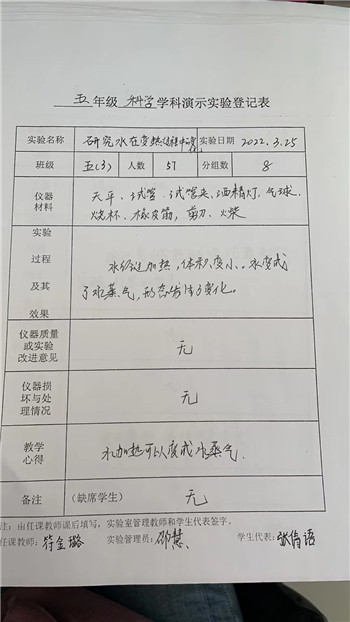 五年级 科学学科演示实验登记表
实验名称 研究水在受热过程中变化 实验日期 2022.3.25
班级 五(3) 人数 57 分组数 8
仪器
材料
天平、试管、试管夹、酒精灯、气球、
烧杯、橡皮筋、剪刀、火柴
实验
过程
及其
效果
水经过加热,体积变小。水变成
了水蒸气,形态发生了变化。
仪器质量
或实验
改进意见
无
仪器损
坏与处
理情况
无
教学
心得
水加热可以变成水蒸气.
备注 (缺席学生) 无
注:由任课教师课后填写,实验室管理教师和学生代表签字。
任课教师:符金璐 实验管理员:邵慧 学生代表:张倩语